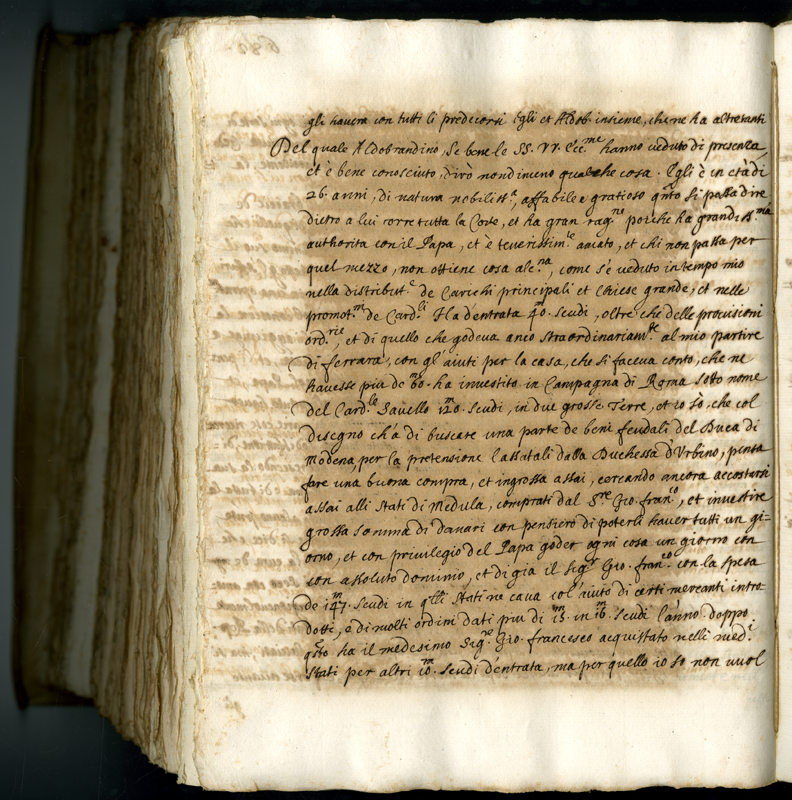 gli havera con tutti li predecorsi Egli et Aldob. insieme, che ne ha altretanti
Del quale Aldobrandino, se bene le SS. VV. Ecc.me hanno veduto di presenza,
et è bene conosciuto, dirò nondimeno qualche cosa. Egli è in età di
26 anni, di natura nobiliss.a, affabile e gratioso q.nto si possa dire
dietro a lui corre tutta la Corte, et ha gran rag.ne poiche ha grandiss.ma
authorità con il Papa, et è tenerissim.e amato, et chi non passa per
quel mezzo, non ottiene cosa alc.na, come s'è veduto in tempo mio
nella distribut.e de Carichi principali et Chiese grande, et nelle
promot.m de Card.li Ha d'entrata 40.m scudi, oltre che delle provisioni
ord.rie, et di quello che godeva anco straordinariam.te al mio partire
di ferrara, con gl'aiuti per la casa, che si faceva conto, che ne
havesse piu de 60.m ha investito in Campagna di Roma sotto nome
del Card.le Savello 120.m scudi, in due grosse Terre, et io sò, che col
disegno ch'à di buscare una parte de beni feudali del Duca di
Modena, per la pretensione lassatali dalla Duchessa d'Urbino, pensa
fare una buona compra, et ingrossa assai, cercando ancora accostarsi
assai alli stati di Medula, comprati dal S.re Gio. fran.co, et investire
grossa somma di danari con pensiero di poterli haver tutti un gi=
orno, et con privilegio del Papa goder ogni cosa un giorno con
con assoluto dominio, et di già il Sig.r Gio. fran.co con la spesa
de 147.m scudi in q.lli stati ne cava col'aiuto di certi mercanti intro-
dotti, e di molti ordini dati piu di 15.m in 16.m scudi l'anno. doppo
q.sto ha il medesimo Sig.re Gio. francesco acquistato nelli med.i
stati per altri 10.m scudi d'entrata, ma per quello io so non vuol